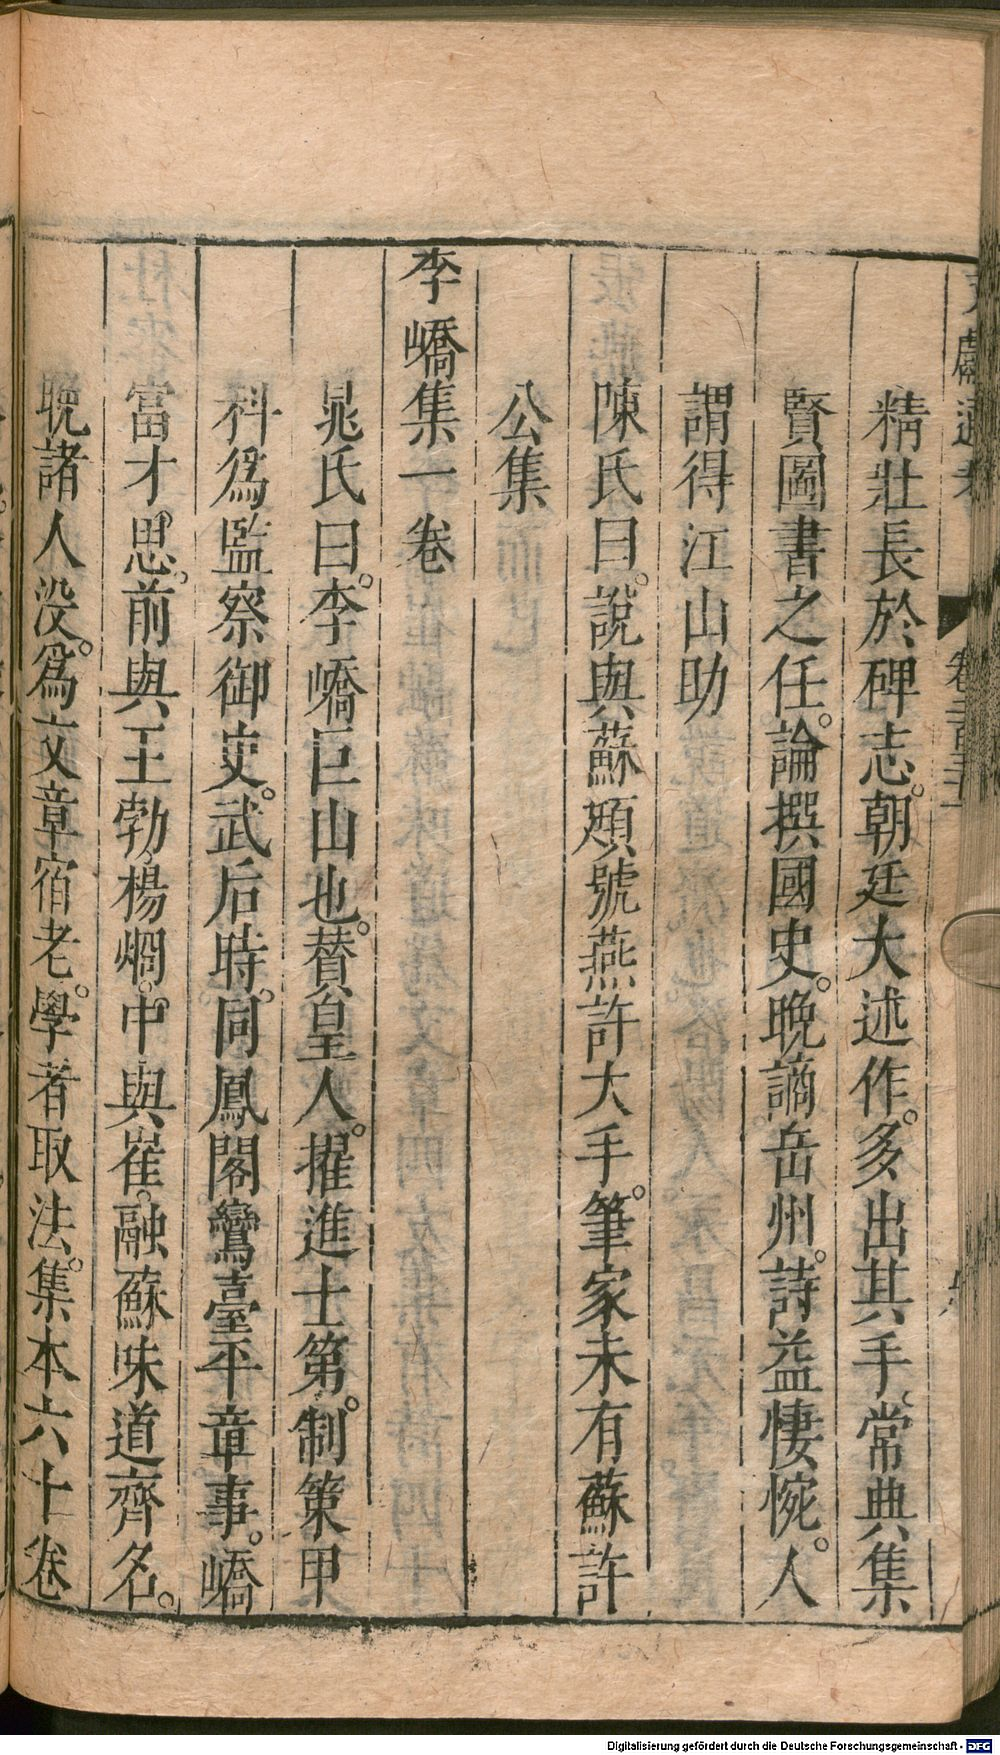 精壯長於碑志。朝廷大述作。多出其手、常典集
賢圖書之任。論撰國史。晚謫岳州。詩益悽惋。人
謂得江山助
陳氏曰。說與蘇頲號燕許大手。筆家未有蘇許
公集
李嶠集一卷
晁氏曰。李嶠巨山也。贊皇人。擢進士第。制策甲
科爲監察御史。武后時。同鳳閣鸞臺平章事。嶠
富才。思。前與王勃。楊烱。中與崔。融蘇味道齊名。
晚諸人沒。爲文章宿老。學者取法。集本六十卷
Digitalisierung gefördert durch die Deutsche Forschungsgemeinschaft - DFG